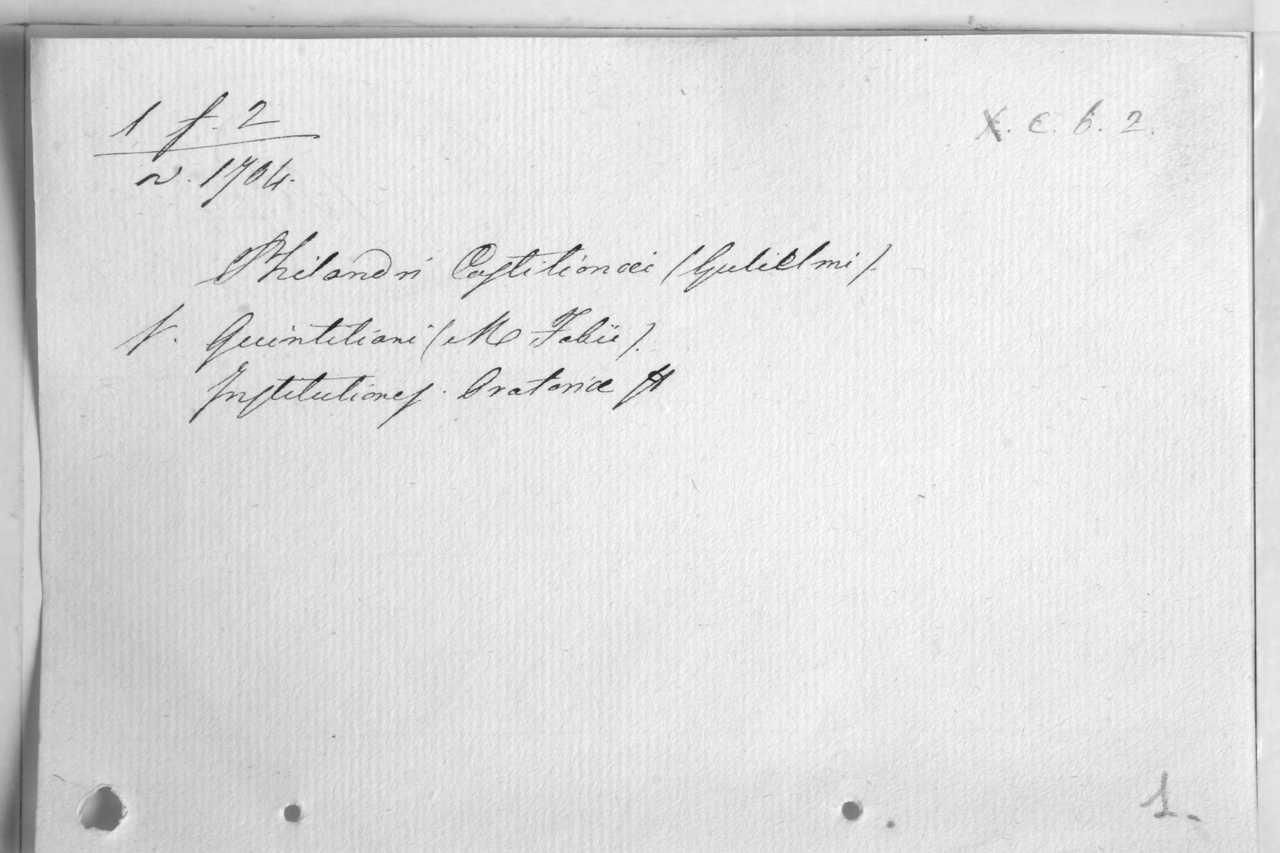 1 f. 2 X. c. b. 2.
n. 1704.
Philandri Castilionaei (Gulielmi).
V. Quintiliani (M Fabii).
Institutiones. Oratoriae
1.